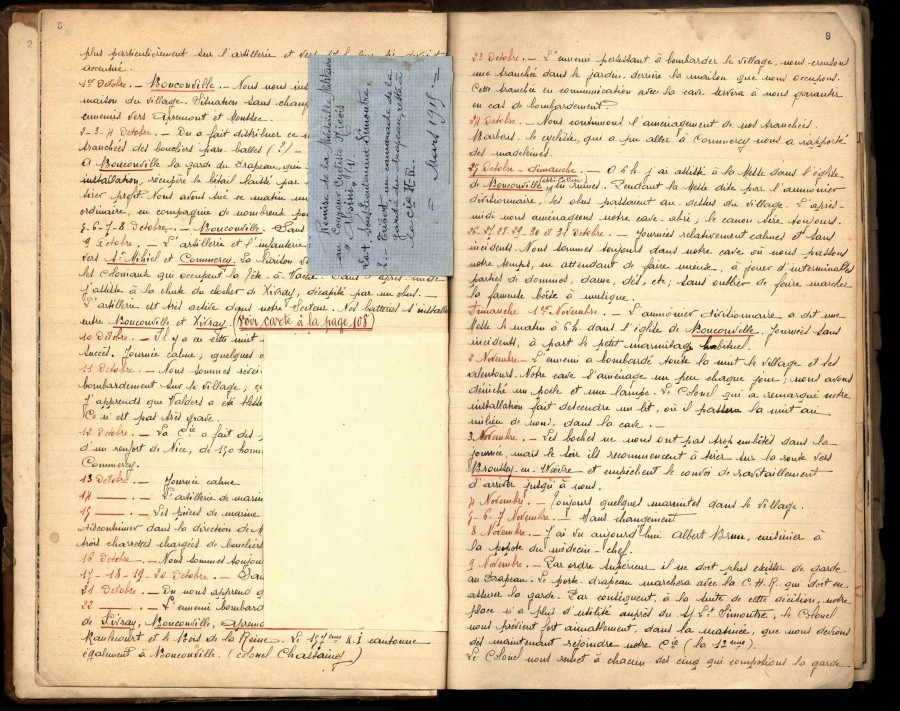 8
plus particulièrement sur l'artillerie et vers
accentué.
1er Octobre. — Bouconville. — Nous nous
maison du village. Situation sans chang
ennemis vers Apremont et Montsec.
2-3-4 Octobre. — On a fait distribuer ce
tranchées des boucliers pare-balles (?) —
A Bouconville la garde du Drapeau, qui
installation, récupère le bétail laissé par
tirer profit. Nous avons tué ce matin un
ordinaire, en compagnie de nombreux po
5-6-7-8 Octobre. — Bouconville. — San
9 Octobre. — L'artillerie et l'infanterie
vers St-Mihiel et Commercy. La liaison
les coloniaux qui occupent la Tête-à-Vache.
J'assiste à la chute du clocher de Xivray, décapité par un obus. —
L'artillerie est très active dans notre Secteur. Nos batteries s'installe
entre Bouconville et Xivray. (Voir carte à la page 108)
10 Octobre. — Il y a eu cette nuit
succès. Journée calme ; quelques
11 Octobre. — Nous sommes
bombardement sur le village ;
J'apprends que Valders a été bless
Ce n'est pas très grave.
12 Octobre. — La Cie a fait des
d'un renfort de Nice, de 150 homm
Commercy.
13 Octobre. — Journée calme
14 — . — L'artillerie de marin
15 — . — Les pièces de marine
discontinuer dans la direction de
trois charrettes chargées de boucliers
16 Octobre. — Nous sommes toujou
17-18-19-20 Octobre. — San
21 Octobre. — On nous apprend
22 — . — L'ennemi bombard
de Xivray, Bouconville, Apremo
Mandecourt et le Bois de la Reine. Le 157ème R.I cantonne
également à Bouconville. (colonel Chastaing)
Remise de la Médaille Militaire
au Chasseur Cycliste
Le + Sous-Lieutenant Simoutre,
Turot, un camarade de la
garde du drapeau, resté à
la Cie H.R.
Mars 1915
9
23 Octobre. — L'ennemi persistant à bombarder le village, nous creusons
une tranchée dans le jardin, derrière la maison que nous occupons.
Cette tranchée en communication avec la cave servira à nous garantir
en cas de bombardement.
24 Octobre. — Nous continuons l'aménagement de nos tranchées.
Barberis, le cycliste, qui a pu aller à Commercy nous a rapporté
des madeleines.
25 Octobre - dimanche. — A 6h. j'ai assisté à la Messe dans l'église
de Bouconville, en ruines. Pendant la Messe dite par l'aumônier
divisionnaire, les obus passaient au dessus du village. L'après-
midi nous aménageons notre cave-abri ; le canon tire toujours.
26-27-28-29-30 et 31 Octobre. — Journées relativement calmes et sans
incidents. Nous sommes toujours dans notre cave où nous passons
notre temps, en attendant de faire mieux, à jouer d'interminables
parties de dominos, dame, dés, etc ; sans oublier de faire marcher
la fameuse boîte à musique.
Dimanche 1er Novembre. — L'aumônier divisionnaire a dit une
Messe le matin à 6h. dans l'église de Bouconville. Journées sans
incidents, à part le petit marmitage habituel.
2 Novembre. — L'ennemi a bombardé toute la nuit le village et les
alentours. Notre cave s'aménage un peu chaque jour ; nous avons
déniché un poêle et une lampe. Le Colonel qui a remarqué notre
installation fait descendre un lit, où il passera la nuit au
milieu de nous, dans la cave. —
3 Novembre. — Les boches ne nous ont pas trop embêtés dans la
journée, mais le soir ils recommencent à tirer sur la route vers
Broussey-en-Woëvre et empêchent le convoi de ravitaillement
d'arriver jusqu'à nous.
4 Novembre. — Toujours quelques marmites dans le village.
5-6-7 Novembre. — Sans changement
8 Novembre. — J'ai vu aujourd'hui Albert Brun, cuisinier à
la popote du médecin-chef.
9 Novembre. — Par ordre supérieur il ne doit plus exister de garde
au Drapeau. Le porte-drapeau marchera avec la C.H.R. qui doit en
assurer la garde. Par conséquent, à la suite de cette décision, notre
place n'a plus d'utilité auprès du S/Lt Simoutre, le Colonel
nous prévient fort aimablement, dans la matinée, que nous devions
dès maintenant rejoindre notre Cie (la 1ère).
Le Colonel nous remet à chacun des cinq qui composions la garde